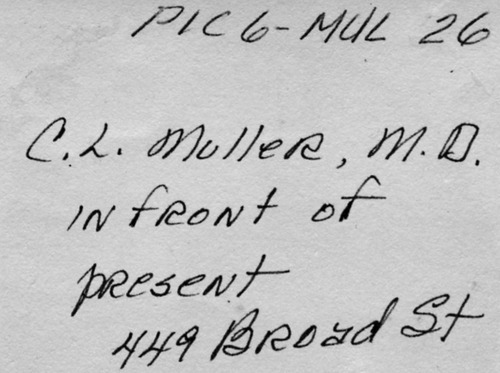 PIC6-MUL 26
C.L. Muller, M.D.
in front of
present
449 Broad St